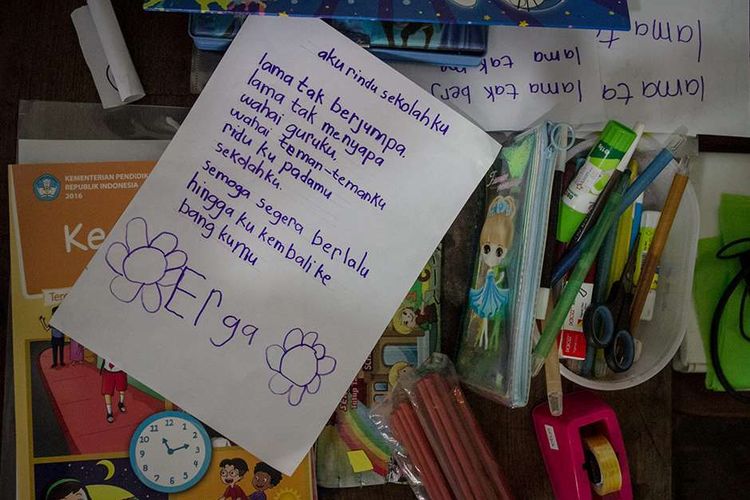 aku rindu sekolahku
lama tak berjumpa.
lama tak menyapa
wahai guruku,
wahai teman-temanku
ridu ku padamu
sekolahku.
semoga segera berlalu
hingga ku kembali ke
bang kumu
Erga
KEMENTERIAN PENDIDIK
REPUBLIK INDONESIA
2016
Ke
lama ta
lama tak berj
lama tak me
lama t